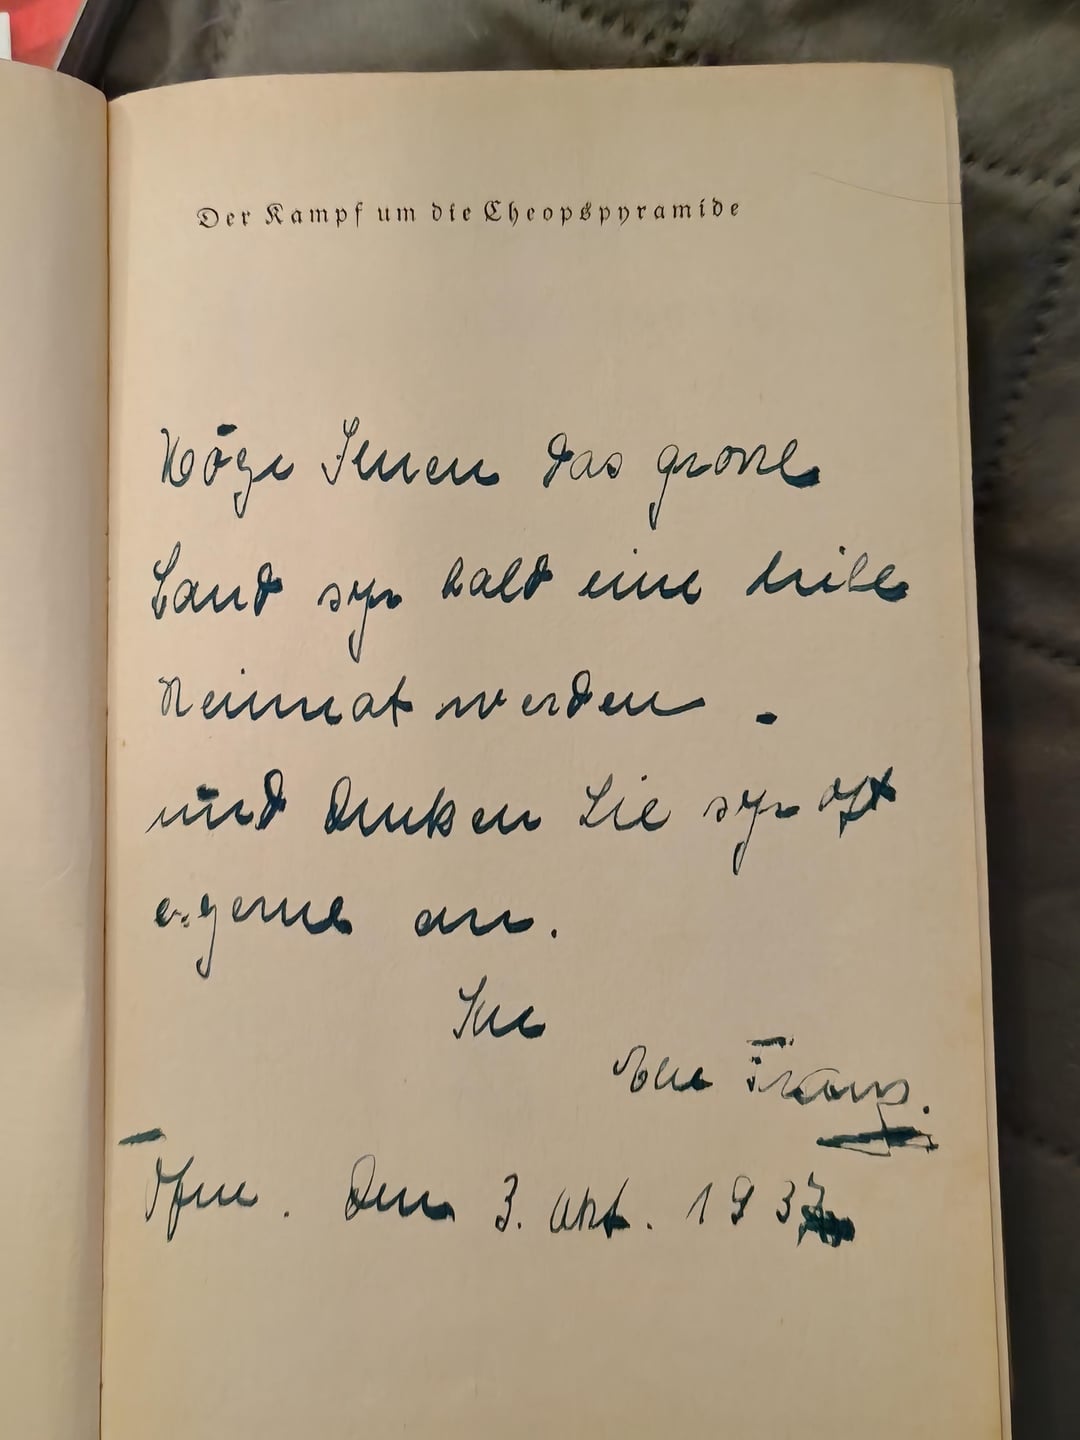 Der Kampf um die Cheopspyramide
Möge Ihnen das grosse
Land sehr bald eine liebe
Heimat werden .
und denken Sie sehr oft
gerne an.
Ihre
Else Franz.
Den 3. Okt. 1937